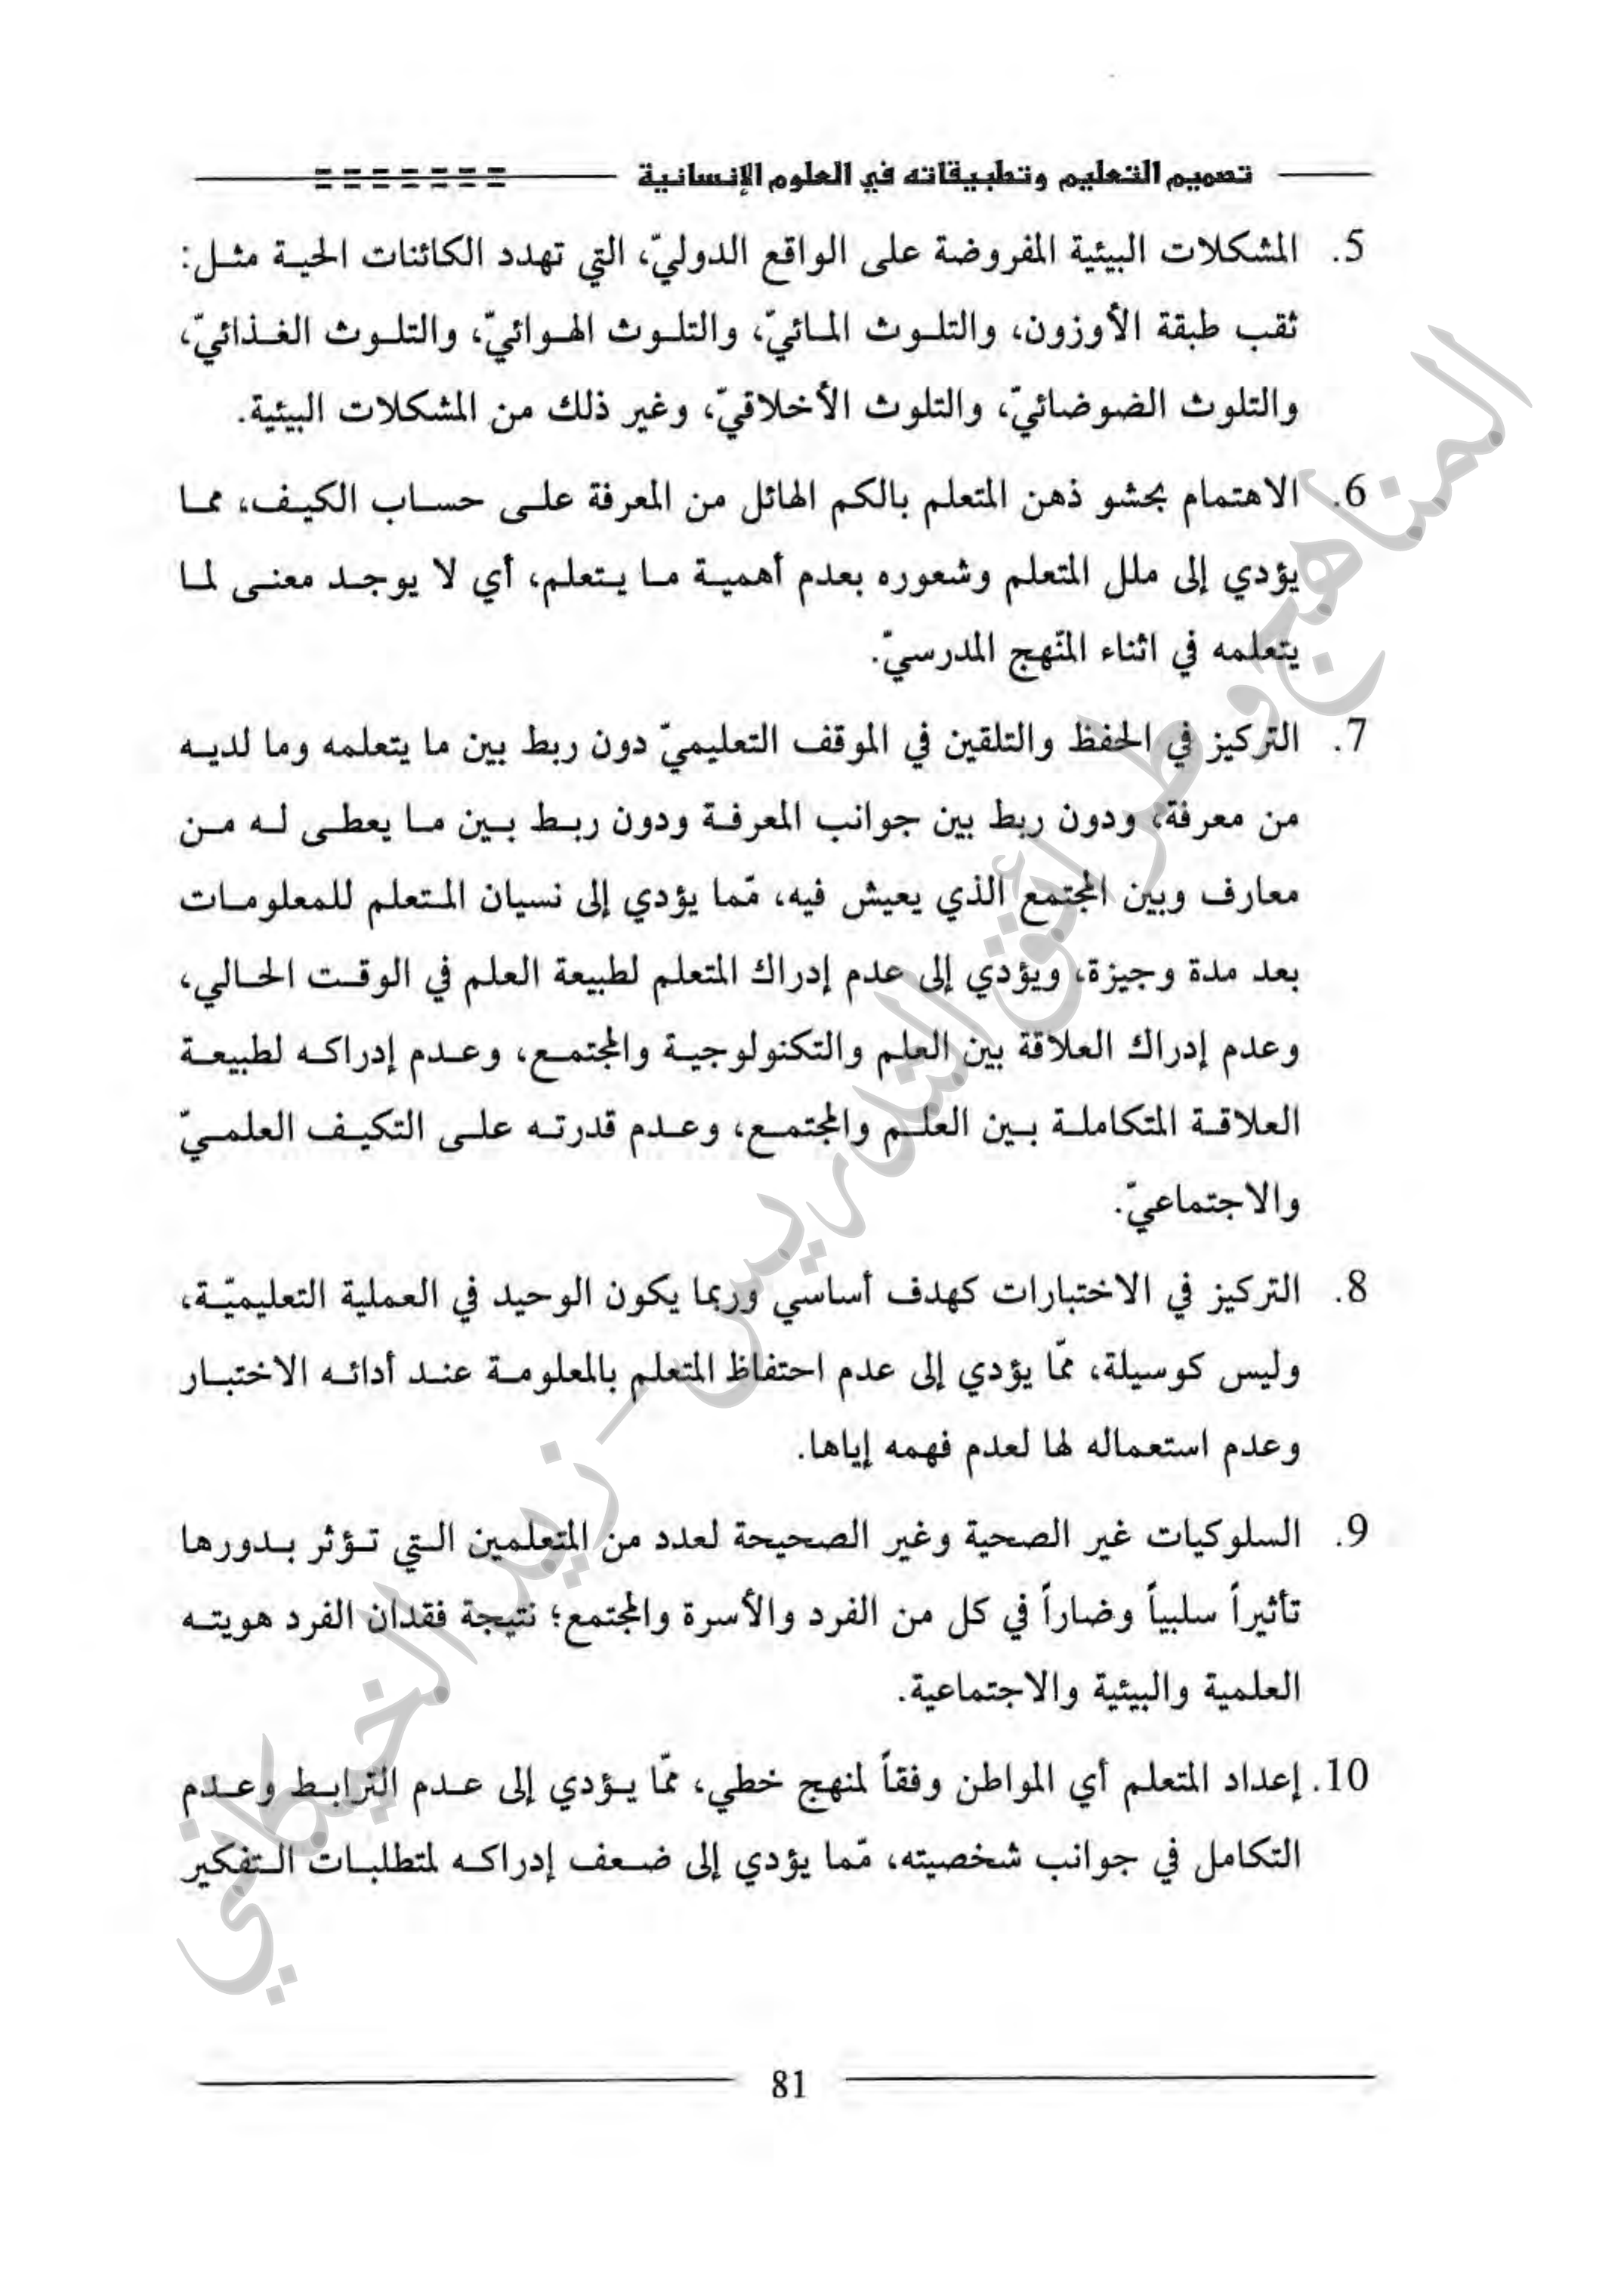 تصميم التعليم وتطبيقاته في العلوم الإنسانية
5. المشكلات البيئية المفروضة على الواقع الدوليّ، التي تهدد الكائنات الحية مثل:
ثقب طبقة الأوزون، والتلوث المائيّ، والتلوث الهوائيّ، والتلوث الغذائيّ،
والتلوث الضوضائيّ، والتلوث الأخلاقيّ، وغير ذلك من المشكلات البيئية.
6. الاهتمام بحشو ذهن المتعلم بالكم الهائل من المعرفة على حساب الكيف، مما
يؤدي إلى ملل المتعلم وشعوره بعدم أهمية ما يتعلم، أي لا يوجد معنى لما
يتعلمه في اثناء المنّهج المدرسيّ.
7. التركيز في الحفظ والتلقين في الموقف التعليميّ دون ربط بين ما يتعلمه وما لديه
من معرفة، ودون ربط بين جوانب المعرفة ودون ربط بين ما يعطى له من
معارف وبين المجتمع الذي يعيش فيه، مّما يؤدي إلى نسيان المتعلم للمعلومات
بعد مدة وجيزة، ويؤدي إلى عدم إدراك المتعلم لطبيعة العلم في الوقت الحالي،
وعدم إدراك العلاقة بين العلم والتكنولوجية والمجتمع، وعدم إدراكه لطبيعة
العلاقة المتكاملة بين العلم والمجتمع، وعدم قدرته على التكيف العلميّ
والاجتماعيّ.
8. التركيز في الاختبارات كهدف أساسي وربما يكون الوحيد في العملية التعليميّة،
وليس كوسيلة، ممّا يؤدي إلى عدم احتفاظ المتعلم بالمعلومة عند أدائه الاختبار
وعدم استعماله لها لعدم فهمه إياها.
9. السلوكيات غير الصحية وغير الصحيحة لعدد من المتعلمين التي تؤثر بدورها
تأثيراً سلبياً وضاراً في كل من الفرد والأسرة والمجتمع؛ نتيجة فقدان الفرد هويته
العلمية والبيئية والاجتماعية.
10. إعداد المتعلم أي المواطن وفقاً لمنهج خطي، ممّا يؤدي إلى عدم الترابط وعدم
التكامل في جوانب شخصيته، مّما يؤدي إلى ضعف إدراكه لمتطلبات التفكير
81
المناهج وطرائق التدريس - زيد الخيكاني